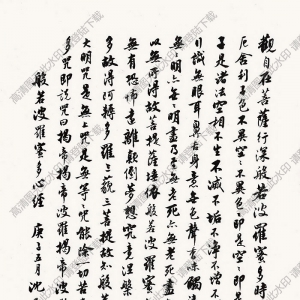 觀自在菩薩行深般若波羅蜜多時
厄舍利子色不異空不異色色即是空即
子是諸法空相不生不滅不垢不淨不
行識無眼耳鼻舌身意無色聲香味觸
無無明亦無無明盡乃至無老死亦無老死盡
以無所得故菩提薩埵依般若波羅蜜
無有恐怖遠離顛倒夢想究竟涅槃
多故得阿耨多羅三藐三菩提
大明咒是無上咒是無等等咒能除一切苦
多咒即說咒曰揭帝揭帝波羅揭帝波羅
般若波羅蜜多心經 庚子五月 沈